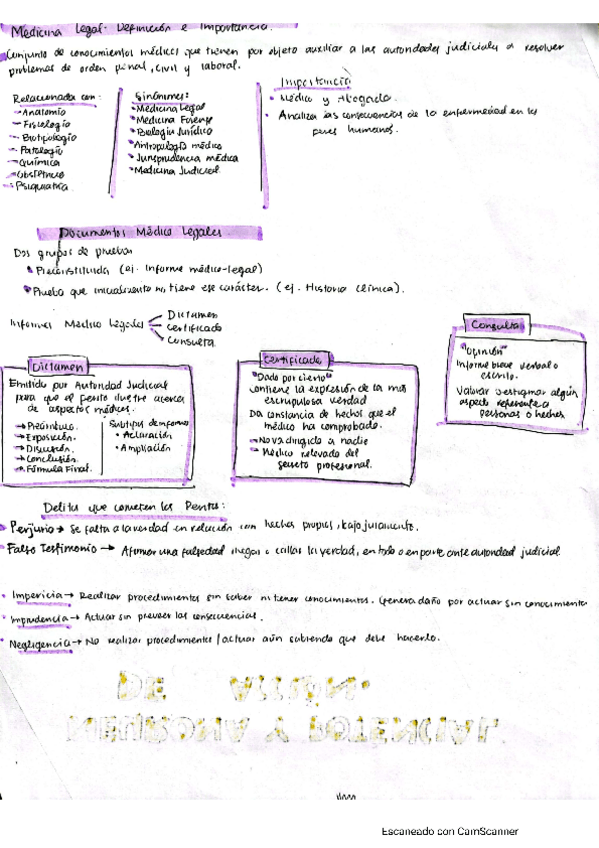 Medicina Legal- Definición e Importancia.
Conjunto de conocimientos médicos que tienen por objeto auxiliar a las autoridades judiciales a resolver
problemas de orden penal, civil y laboral.
Relacionada con:
Anatomía
Fisiología
Biotipología
Patología
Química
Obstetricia
Psiquiatría
Sinónimos:
Medicina Legal
Medicina Forense
Biología Jurídica
Antropología médica
Jurisprudencia médica
Medicina Judicial
Importancia
Médico y Abogado.
Analiza las consecuencias de la enfermedad en los
seres humanos.
Documentos Médico Legales
Dos grupos de pruebas
Preconstituida (ej. Informe médico-legal)
Prueba que inicialmente no tiene ese carácter. (ej. Historia Clínica).
Informes Médico Legales
Dictamen
Certificado
Consulta
Dictamen
Emitido por Autoridad Judicial
para que el perito ilustre acerca
de aspectos médicos.
→ Preámbulo.
→ Exposición.
→ Discusión.
→ Conclusión.
→ Fórmula Final.
Subtipos de informes
• Aclaración
• Ampliación
Certificado
"Dado por cierto"
contiene la expresión de la más
escrupulosa verdad
Da constancia de hechos que el
médico ha comprobado.
No va dirigido a nadie
Médico relevado del
secreto profesional.
Consulta
"Opinión"
Informe breve verbal o
escrito.
Valorar e investigar algún
aspecto referente a
personas o hechos
Delitos que cometen los Peritos:
Perjurio → Se falta a la verdad en relación con hechos propios, bajo juramento.
Falso Testimonio → Afirmar una falsedad, negar o callar la verdad, en todo o en parte ante autoridad judicial
Impericia → Realizar procedimientos sin saber ni tener conocimientos. Genera daño por actuar sin conocimiento
Imprudencia → Actuar sin prever las consecuencias.
Negligencia → No realizar procedimientos/actuar aún sabiendo que debe hacerlo.
Escaneado con CamScanner